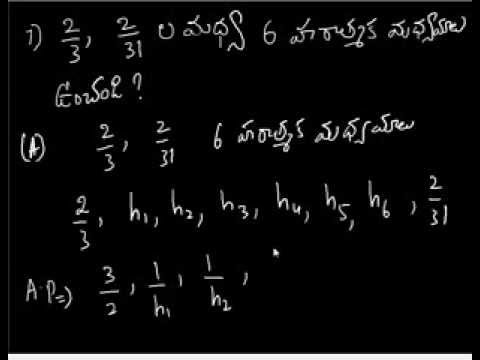 7) 2/3, 2/31 ల మధ్య 6 హరాత్మక మధ్యమాలు
ఉంచండి ?
(A) 2/3, 2/31 6 హరాత్మక మధ్యమాలు
2/3, h₁, h₂, h₃, h₄, h₅, h₆, 2/31
A.P ⇒) 3/2, 1/h₁, 1/h₂,